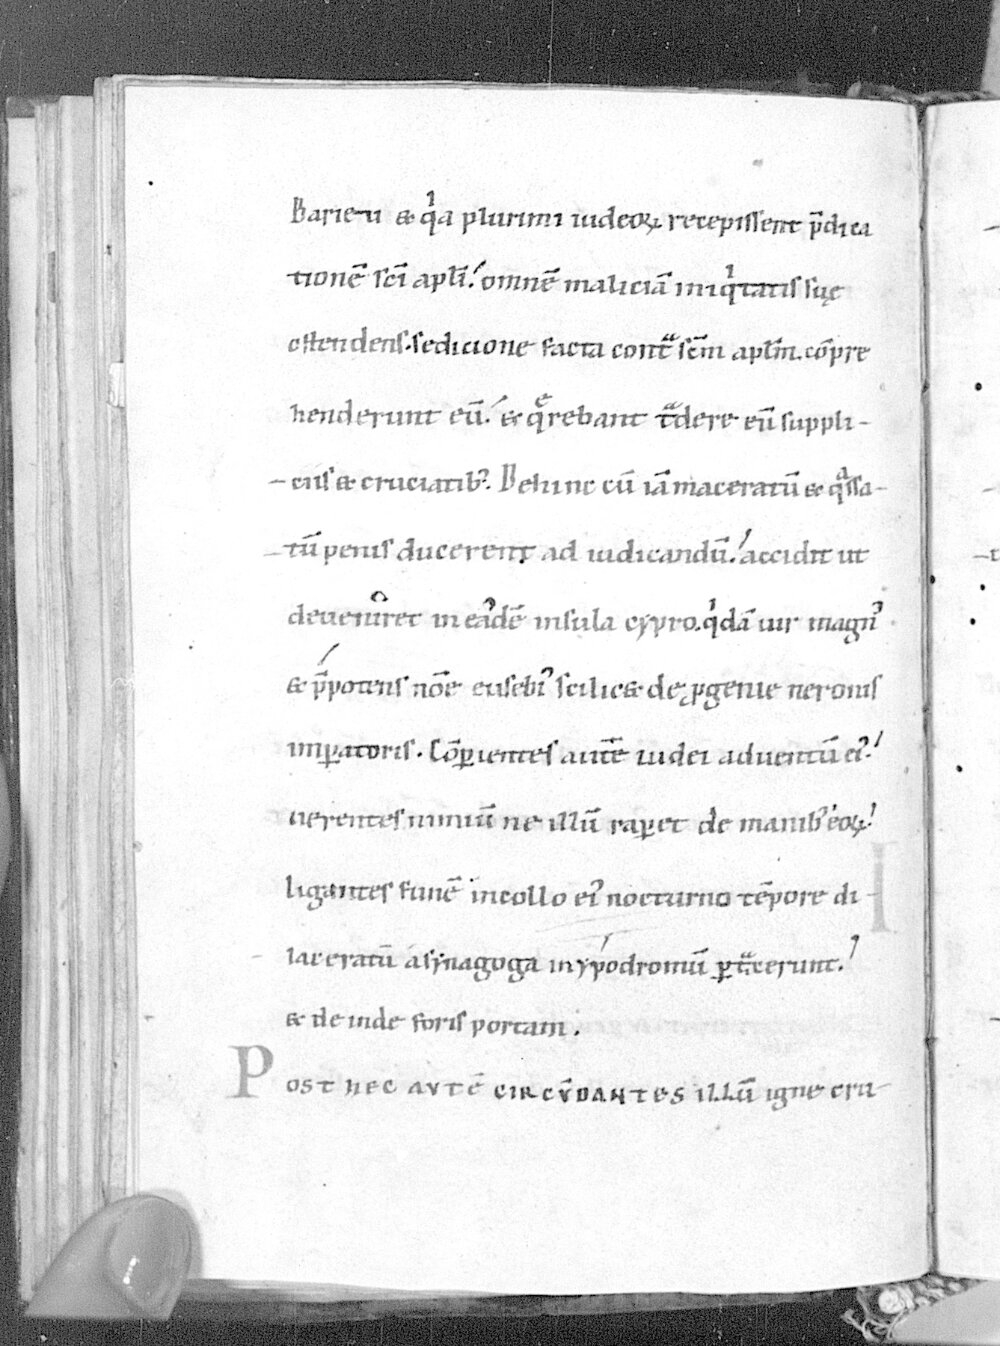 Barieu & qͥa plurimi iudeoꝝ recepissent p̄dica
tionē sc̄i apl̄i. omnē maliciā iniqͥtatis suę
ostendens. sedicione facta contᷓ sc̄m apl̄m. cōpre
henderunt eū. & qͣͤrebant tᷓdere eū suppli-
ciis & cruciatibꝰ. Dehinc cū iā maceratū & qͣssa-
tū penis ducerent ad iudicandū. accidit ut
deueniret in eādē insula cypro. qͥdā uir magnꝰ
& p̄potens nōe eusebiꝰ scilic& de ꝓgenie neronis
imꝑatoris. Cōꝑientes autē iudei aduentū eiꝰ.
uerentes nimiū ne illū raꝑet de manibꝰ eoꝝ.
ligantes funē in collo eiꝰ nocturno tēpore di-
laceratū a synagoga in ypodromū ꝑtᷓxerunt.
& de inde foris portam.
POST HEC AVTĒ CIRCV̄DANTES ILLŪ igne cru-